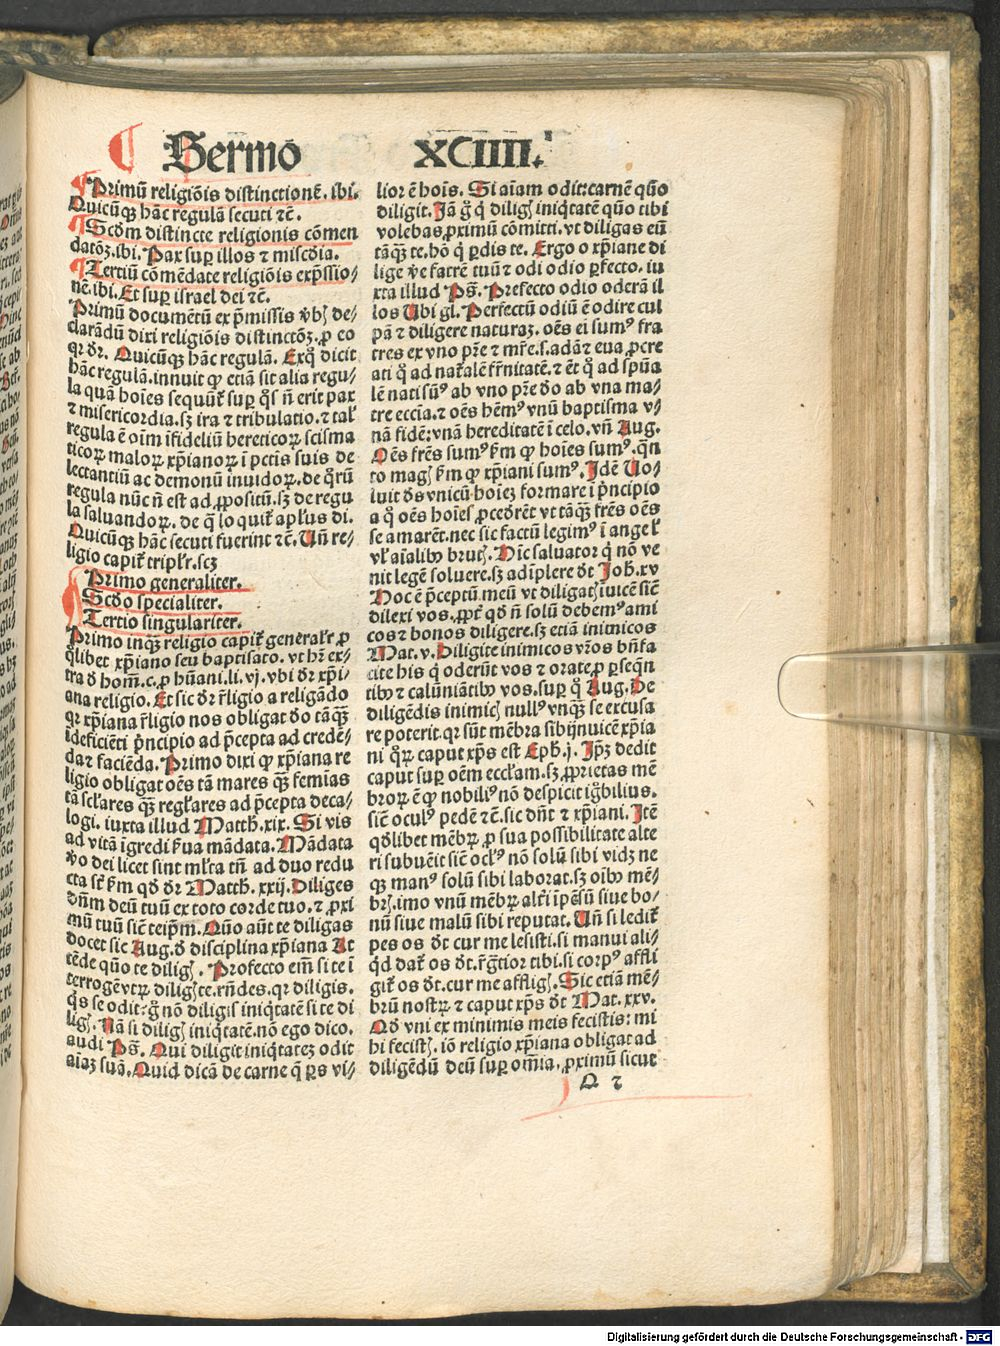 Sermo XCIIII.
Primū religiōis distinctionē. ibi.
Quicūqꝫ hāc regulā secuti ⁊c̄.
Scd̄m distincte religionis cōmen
datōꝫ. ibi. Pax suꝑ illos ⁊ misc̄dia.
Tertiū cōmēdate religiōis exp̄ssio⸗
nē. ibi. Et suꝑ israel dei ⁊c̄.
Primū documētū ex p̄missis v̄bꝭ de⸗
clarādū dixi religiōis distinctōꝫ. ꝓ eo
qꝛ dr̄. Quicūqꝫ hāc regulā. Exq̊ dicit
hāc regulā. innuit ꝙ etiā sit alia regu⸗
la quā hoīes sequūt᷑ suꝑ q̊s nō erit pax
⁊ misericordia. sꝫ ira ⁊ tribulatio. ⁊ tal᷑
regula ē oīm īfideliū hereticoꝝ scisma
ticoꝝ maloꝝ xp̄ianoꝝ ī pctīs suis de
lectantiū ac demonū inuidoꝝ. de q̊rū
regula nūc nō est ad ꝓpositū. sꝫ de regu
la saluandoꝝ. de q̄ loquit᷑ apl̄us di.
Quicūqꝫ hāc secuti fuerint ⁊c̄. Un̄ re⸗
ligio capit᷑ tripl̄r. scꝫ
Primo generaliter.
Scd̄o specialiter.
Tertio singulariter.
Primo inqꝫ religio capit᷑ general̄r ꝓ
q̊libet xp̄iano seu baptisato. vt hr̄ ex⸗
tra d̄ hom̄. c. ꝓ hūani. li. vj. vbi dr̄ xp̄i⸗
ana religio. Et sic dr̄ r̄ligio a religādo
qꝛ xp̄iana r̄ligio nos obligat d̄o tāqꝫ
īdeficiēti p̄ncipio ad p̄cepta ad credē⸗
da ⁊ faciēda. Primo dixi ꝙ xp̄iana re
ligio obligat oēs tā mares qꝫ femias
tā scl̄ares qꝫ regl̄ares ad p̄cepta deca⸗
logi. iuxta illud Matth. xix. Si vis
ad vitā īgredi ẜua mādata. Mādata
v̄o dei licet sint ml̄ta tn̄ ad duo redu
cta st̄ ẜm qd̄ dr̄ Matth. xxij. Diliges
dn̄m deū tuū ex toto corde tuo. ⁊ ꝓxi
mū tuū sic̄ teip̄m. Quō aūt te diligas
docet sic Aug. d̄ disciplina xp̄iana At
tēde quō te diligꝭ. Profecto em̄ si te ī
terrogēvtꝝ diligꝭ te. rn̄des. qꝛ diligis.
q̊s se odit: g̊ nō diligis īiq̄tatē si te di
ligꝭ. Nā si diligꝭ iniq̄tatē. nō ego dico.
audi Ps̄. Qui diligit iniq̄tateꝫ odit
aīaꝫ suā. Quid dicā de carne q̄ ꝑs vi⸗
lior ē hoīs. Si aīam odit: carnē quō
diligit. Jā g̊ q̇ diligꝭ iniq̄tatē quō tibi
volebas ꝓximū cōmitti. vt diligas eū
tāqꝫ te. hō q̇ ꝑdis te. Ergo o xp̄iane di
lige v̄e fatrē tuū ⁊ odi odio ꝑfecto. iu
xta illud Ps̄. Prefecto odio oderā il
los Ubi gl̄. Perfectū odiū ē odire cul
pā ⁊ diligere naturaꝫ. oēs eī sumꝰ fra
tres ex vno pr̄e ⁊ mr̄e. s. adā ⁊ eua ꝓcre
ati q̊ ad nat᷑alē fr̄nitatē. ⁊ ēt q̊ ad spūa
lē nati sūꝰ ab vno pr̄e d̄o ab vna ma⸗
tre eccīa. ⁊ oēs hēmꝰ vnū baptisma v⸗
nā fidē: vnā hereditatē ī celo. vn̄ Aug.
Oēs fr̄es sumꝰ ẜm ꝙ hoīes sumꝰ. q̄n
to magꝭ ẜm ꝙ xp̄iani sumꝰ. Jdē Uo⸗
luit d̄s vnicū hoīeꝫ formare ī p̄ncipio
a q̊ oēs hoīes ꝓcedrēt vt tāqꝫ fr̄es oēs
se amarēt. nec sic factū legimꝰ ī angel᷑
vl̓ aīalibꝰ brutꝭ. Dīc saluator q̇ nō ve
nit legē soluere. sꝫ adīplere d̄t Joh. xv
Hoc ē p̄ceptū meū vt diligatꝭ īuicē sic̄
dilexi vos. ꝓpt᷑ qd̄ n̄ solū debemꝰ ami
cos ⁊ bonos diligere. sꝫ etiā inimicos
Mat. v. Diligite inimicos vr̄os bn̄fa
cite his q̇ oderūt vos ⁊ orate ꝓ ꝑseq̄n
tibꝰ ⁊ calūniātibꝰ vos. suꝑ q̊ Aug. De
diligēdis inimicꝭ nullꝰ vnqꝫ se excusa
re poterit. qꝛ sūt mēbra sibijnuicē xp̄ia
ni q̊ꝝ caput xp̄s est Eph. j. Jp̄ꝫ dedit
caput suꝑ oēm eccl̄am. sꝫ ꝓprietas mē
broꝝ ē ꝙ nobiliꝰ nō despicit igbilius.
sic̄ oculꝰ pedē ⁊c̄. sic dn̄t ⁊ xp̄iani. Jtē
qd̄libet mēbꝝ ꝓ sua possibilitate alte
ri subuēit sic̄ oclꝰ nō solū sibi vidꝫ ne
qꝫ manꝰ solū sibi laborat. sꝫ oībꝰ mē⸗
brꝭ. imo vnū mēbꝝ alt᷑i īpēsū siue bo⸗
nū siue malū sibi reputat. Un̄ si ledit᷑
pes os d̄t cur me lesisti. si manui ali⸗
q̇d dat᷑ os d̄t. r̄gr̄tior tibi. si corpꝰ affli
git᷑ os d̄t. cur me affligꝭ. Sic etiā mē⸗
brū nostꝝ ⁊ caput xp̄s d̄t Mat. xxv.
Qd̄ vni ex minimis meis fecistis: mi
hi fecistꝭ. iō religio xp̄iana obligat ad
diligēdū deū suꝑ omīa. ꝓximū sicut
Q 2
Digitalisierung gefördert durch die Deutsche Forschungsgemeinschaft - DFG